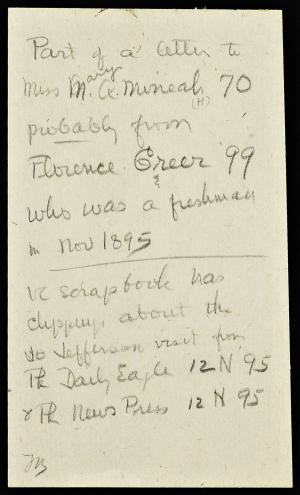 Part of a letter to
Mary
Miss M. A. Mineah '70
(H)
probably from
Florence Greer '99
who was a freshman
in Nov 1895
VC scrapbook has
clippings about the
Jo Jefferson visit from
Th Daily Eagle 12 N 95
& Th News Press 12 N 95